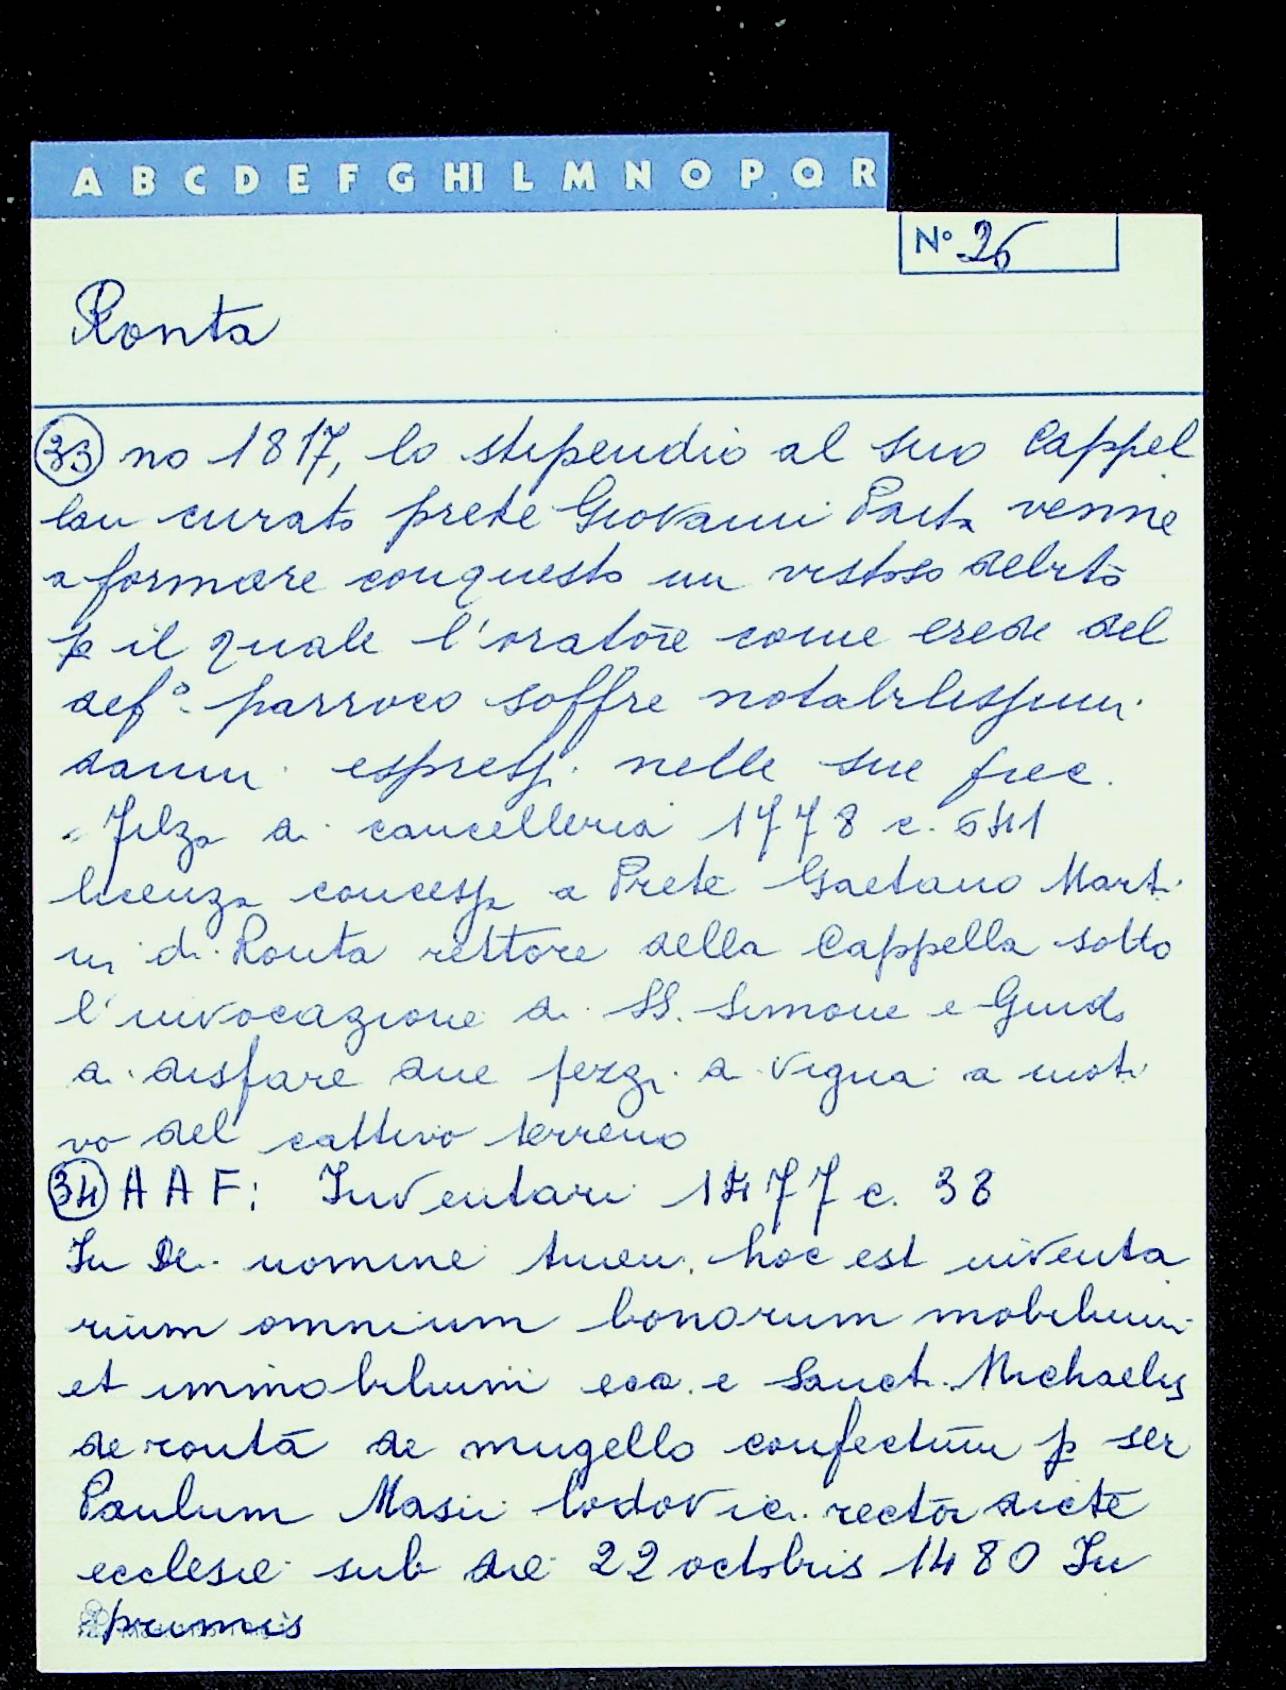 A B C D E F G HI L M N O P Q R
N° 26
Ronta
33 no 1817, lo stipendio al suo Cappel
lan curato prete Giovanni Paita venne
a formare conquesto un vistoso debito
p il quale l'oratore come erede del
def° parroco soffre notabilissimi
danni espressi nelle sue prec.
Filza di cancelleria 1778 c. 541
licenza concessa a Prete Gaetano Marti
ni di Ronta rettore della Cappella sotto
l'invocazione di SS. Simone e Giuda
di disfare due pezzi di vigna a moti
vo del cattivo terreno
34 A A F: Inventari 1477 c. 38
In Dei nomine amen. hoc est inventa
rium omnium bonorum mobilium
et immobilium ecc. e Sancti Michaelis
de rontā de mugello confectūm p ser
Paulum Masii lodovici rectōr dictē
ecclesie sub die 22 octobris 1480 In
primis